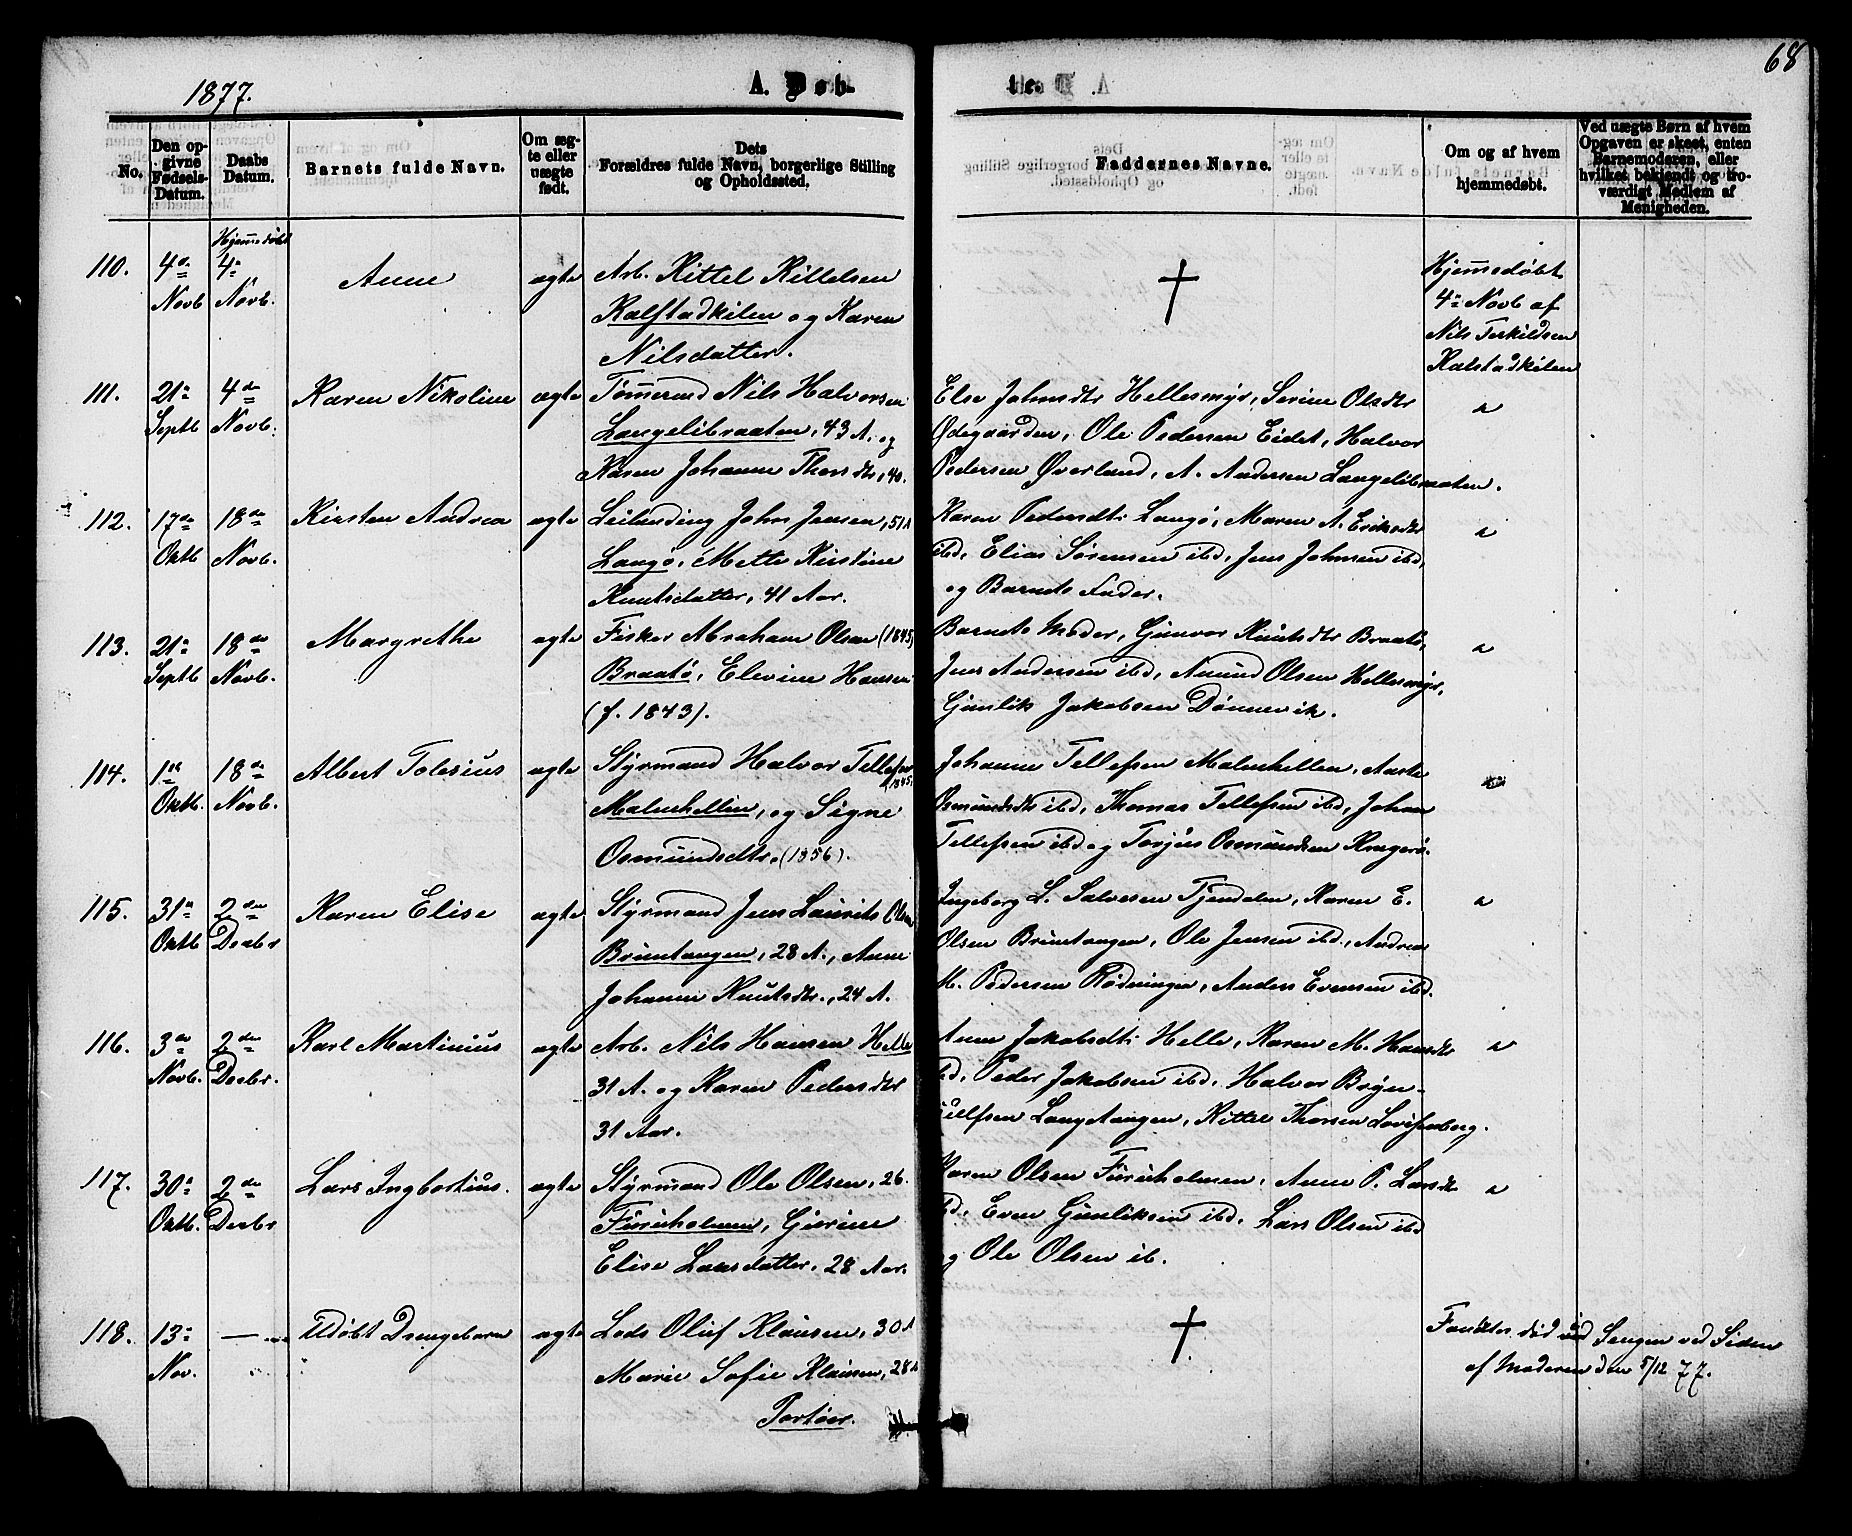 68
1877.
A. Døb-
te.
No.
Den op-
givne
Fødsels-
Datum.
Daabs
Datum.
Barnets fulde Navn.
Om æg-
te eller
uægte
født.
Dets
Forældres fulde Navn, borgerlige Stilling
og Opholdssted.
Faddernes Navne.
Om og af hvem
hjemmedøbt.
Ved uægte Børn af hvem
Opgaven er skeet, enten
Barnemoderen, eller
hvilket bekjendt og tro-
værdigt Medlem af
Menigheden.
110.
4de
Novb
Hjemmedøbt
4de
Novb.
Anne
ægte
Arb. Kittel Kittelsen
Kalstadkilen og Karen
Nilsdatter.
†
Hjemmedøbt
4de Novb af
Nils Terkildsen
Kalstadkilen
111.
21de
Septb
4de
Novb.
Karen Nikoline
ægte
Tømmermd Nils Halvorsen
Langelibraaten, 43 A. og
Karen Johanne Thorsdtr, 40.
Else Johnsdtr Hellesmyr, Serine Olsdtr
Ødegaarden, Ole Pedersen Eidet, Halvor
Pedersen Øverland, A. Andersen Langelibraaten.
112.
17de
Oktb
18de
Novb.
Kirsten Andrea
ægte
Leilending John Jensen, 51 A
Langø, Mette Kirstine
Knutsdatter, 41 Aar.
Karen Pedersdtr Langø, Maren A. Eriksdtr
ibd, Elias Sørensen ibd, Jens Johnsen ibd,
og Barnets Fader.
113.
21de
Septb
18de
Novb.
Margrethe
ægte
Fisker Abraham Olsen (1845)
Braatø, Elevine Hansen
(f. 1843).
Barnets Moder, Gunvor Knutsdtr Braatø,
Jens Andersen ibd, Amund Olsen Hellesmyr,
Gunlik Jakobsen Dønnevik.
114.
1ste
Oktb.
18de
Novb.
Albert Tolesius
ægte
Styrmand Halvor Tellefsen
(1845)
Malenhellen, og Signe
Osmundsdtr. (1856).
Johanne Tellefsen Malenhellen, Aaste
Osmundsdtr ibd, Thomas Tellefsen ibd, Johan
Tellefsen ibd og Torjus Osmundsen Kragerø.
115.
31te
Oktb
2den
Decbr
Karen Elise
ægte
Styrmand Jens Laurits Olsen
Bruntangen, 28 A., Anne
Johanne Knutsdtr., 24 A.
Ingeborg L. Salvesen Tjendalen, Karen E.
Olsen Bruntangen, Ole Jensen ibd, Andreas
M. Pedersen Rødningen, Anders Evensen ibd.
116.
3die
Novb.
2den
Decbr.
Karl Martinius
ægte
Arb. Nils Hansen Helle
31 A. og Karen Pedersdtr
31 Aar.
Anne Jakobsdtr Helle, Karen M. Hansdtr
ibd, Peder Jakobsen ibd, Halvor Bryn-
julfsen Langtangen, Kittel Thorsen Lovisenberg.
117.
30te
Oktb.
2den
Decbr
Lars Ingbortius.
ægte
Styrmand Ole Olsen, 26.
Furuholmen, Gurine
Elise Larsdatter, 28 Aar.
Karen Olsen Furuholmen, Anne P. Larsdtr
ibd, Even Gunliksen ibd, Lars Olsen ibd
og Ole Olsen ib.
118.
13de
Nov.
Udøbt Drengebarn
ægte
Lods Oluf Klausen, 30 A
Marie Sofie Klausen, 28 A
Portør.
†
Fandtes død ved Sengen ved Siden
af Moderen den 5/12 77.